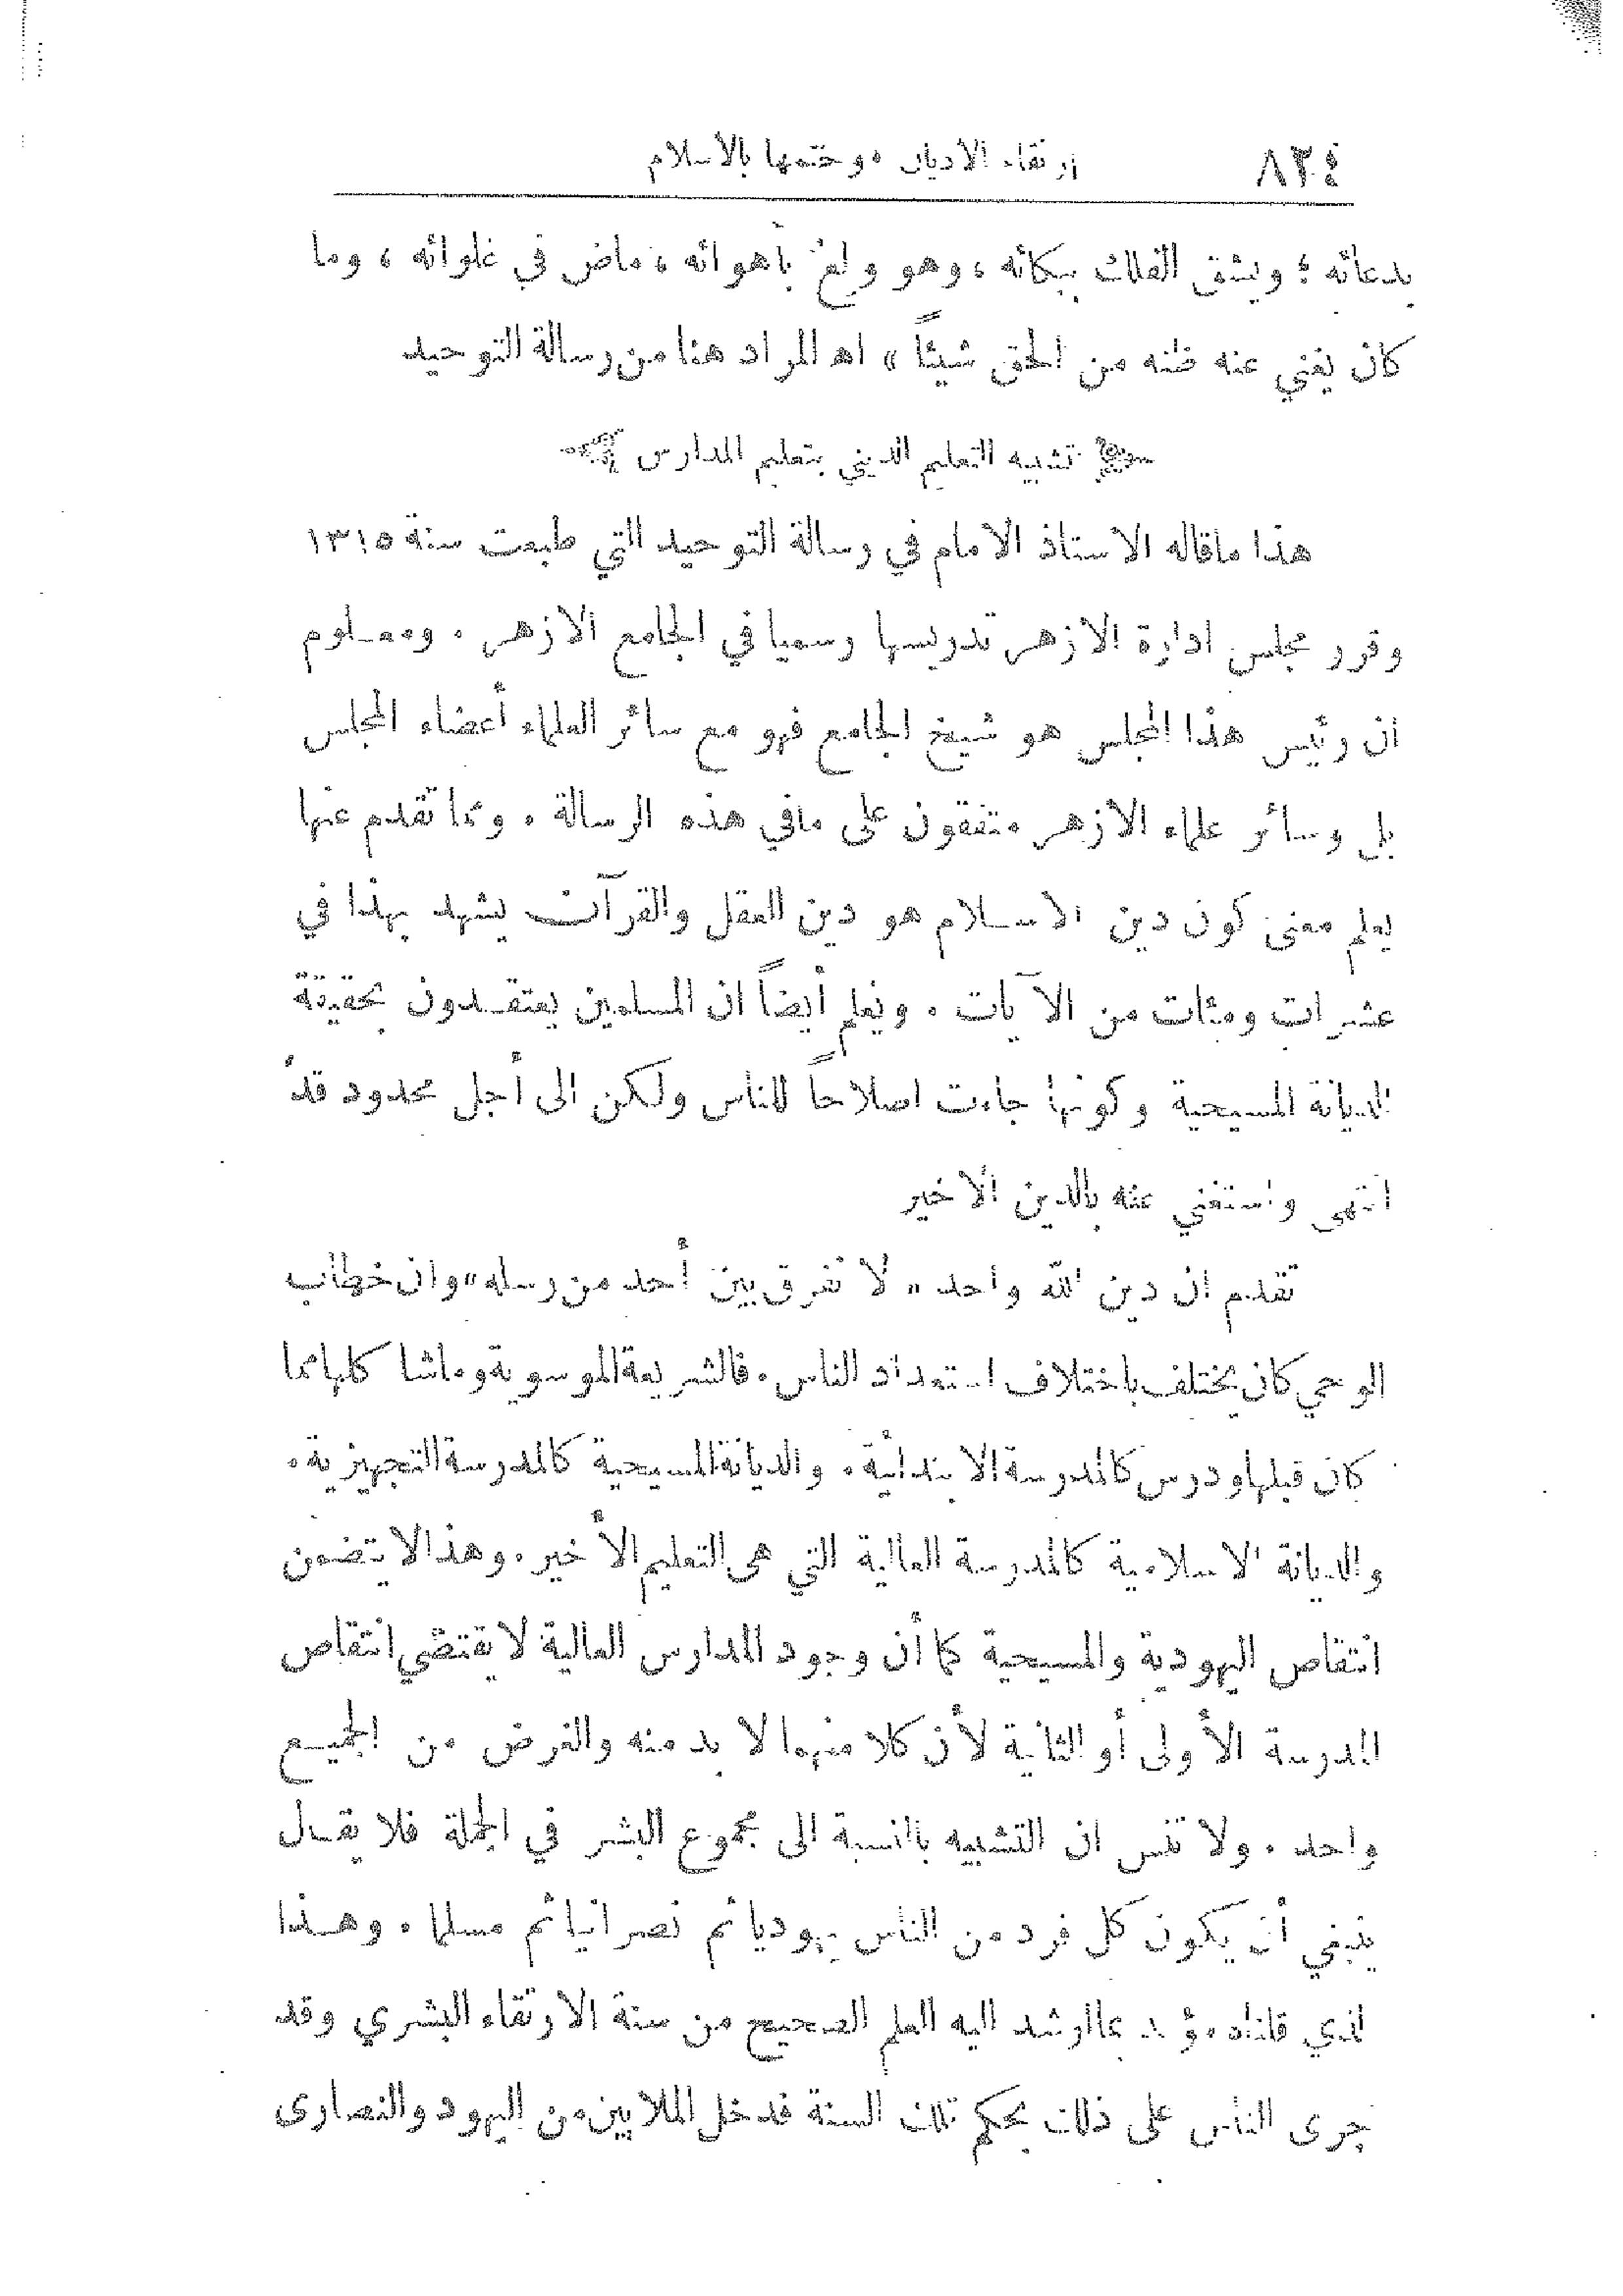 ٨٢٤ ارتقاء الاديان وختمها بالاسلام
بدعائه ؛ ويشق الفلك ببكائه ، وهو ولع بأهوائه ، ماض في غلوائه ، وما
كان يغني عنه ظنه من الحق شيئاً » اه المراد هنا من رسالة التوحيد
تشبيه التعليم الديني بتعليم المدارس
هذا ماقاله الاستاذ الامام في رسالة التوحيد التي طبعت سنة ١٣١٥
وقرر مجلس ادارة الازهر تدريسها رسميا في الجامع الازهر . ومعلوم
ان رئيس هذا المجلس هو شيخ الجامع فهو مع سائر العلماء أعضاء المجلس
بل وسائر علماء الازهر متفقون على مافي هذه الرسالة . ومما تقدم عنها
يعلم معنى كون دين الاسلام هو دين العقل والقرآن يشهد بهذا في
عشرات ومئات من الآيات . ويعلم أيضاً ان المسلمين يعتقدون بحقيقة
الديانة المسيحية وكونها جاءت اصلاحاً للناس ولكن الى أجل محدود قد
انتهى واستغني عنه بالدين الاخير
تقدم ان دين الله واحد « لا نفرق بين أحد من رسله » وان خطاب
الوحي كان يختلف باختلاف استعداد الناس . فالشريعة الموسوية وماشا كلها مما
كان قبلها ودرس كالمدرسة الابتدائية . والديانة المسيحية كالمدرسة التجهيزية .
والديانة الاسلامية كالمدرسة العالية التي هي التعليم الأخير . وهذا لا يتضمن
انتقاص اليهودية والمسيحية كما أن وجود المدارس العالية لا يقتضي انتقاص
المدرسة الأولى أو الثانية لأن كلا منهما لا بد منه والغرض من الجميع
واحد . ولا تنس ان التشبيه بالنسبة الى مجموع البشر في الجملة فلا يقال
ينبغي أن يكون كل فرد من الناس يهوديا ثم نصرانيا ثم مسلما . وهذا
لذي قلناه مؤيد بما ارشد اليه العلم الصحيح من سنة الارتقاء البشري وقد
جرى الناس على ذلك بحكم تلك السنة فدخل الملايين من اليهود والنصارى